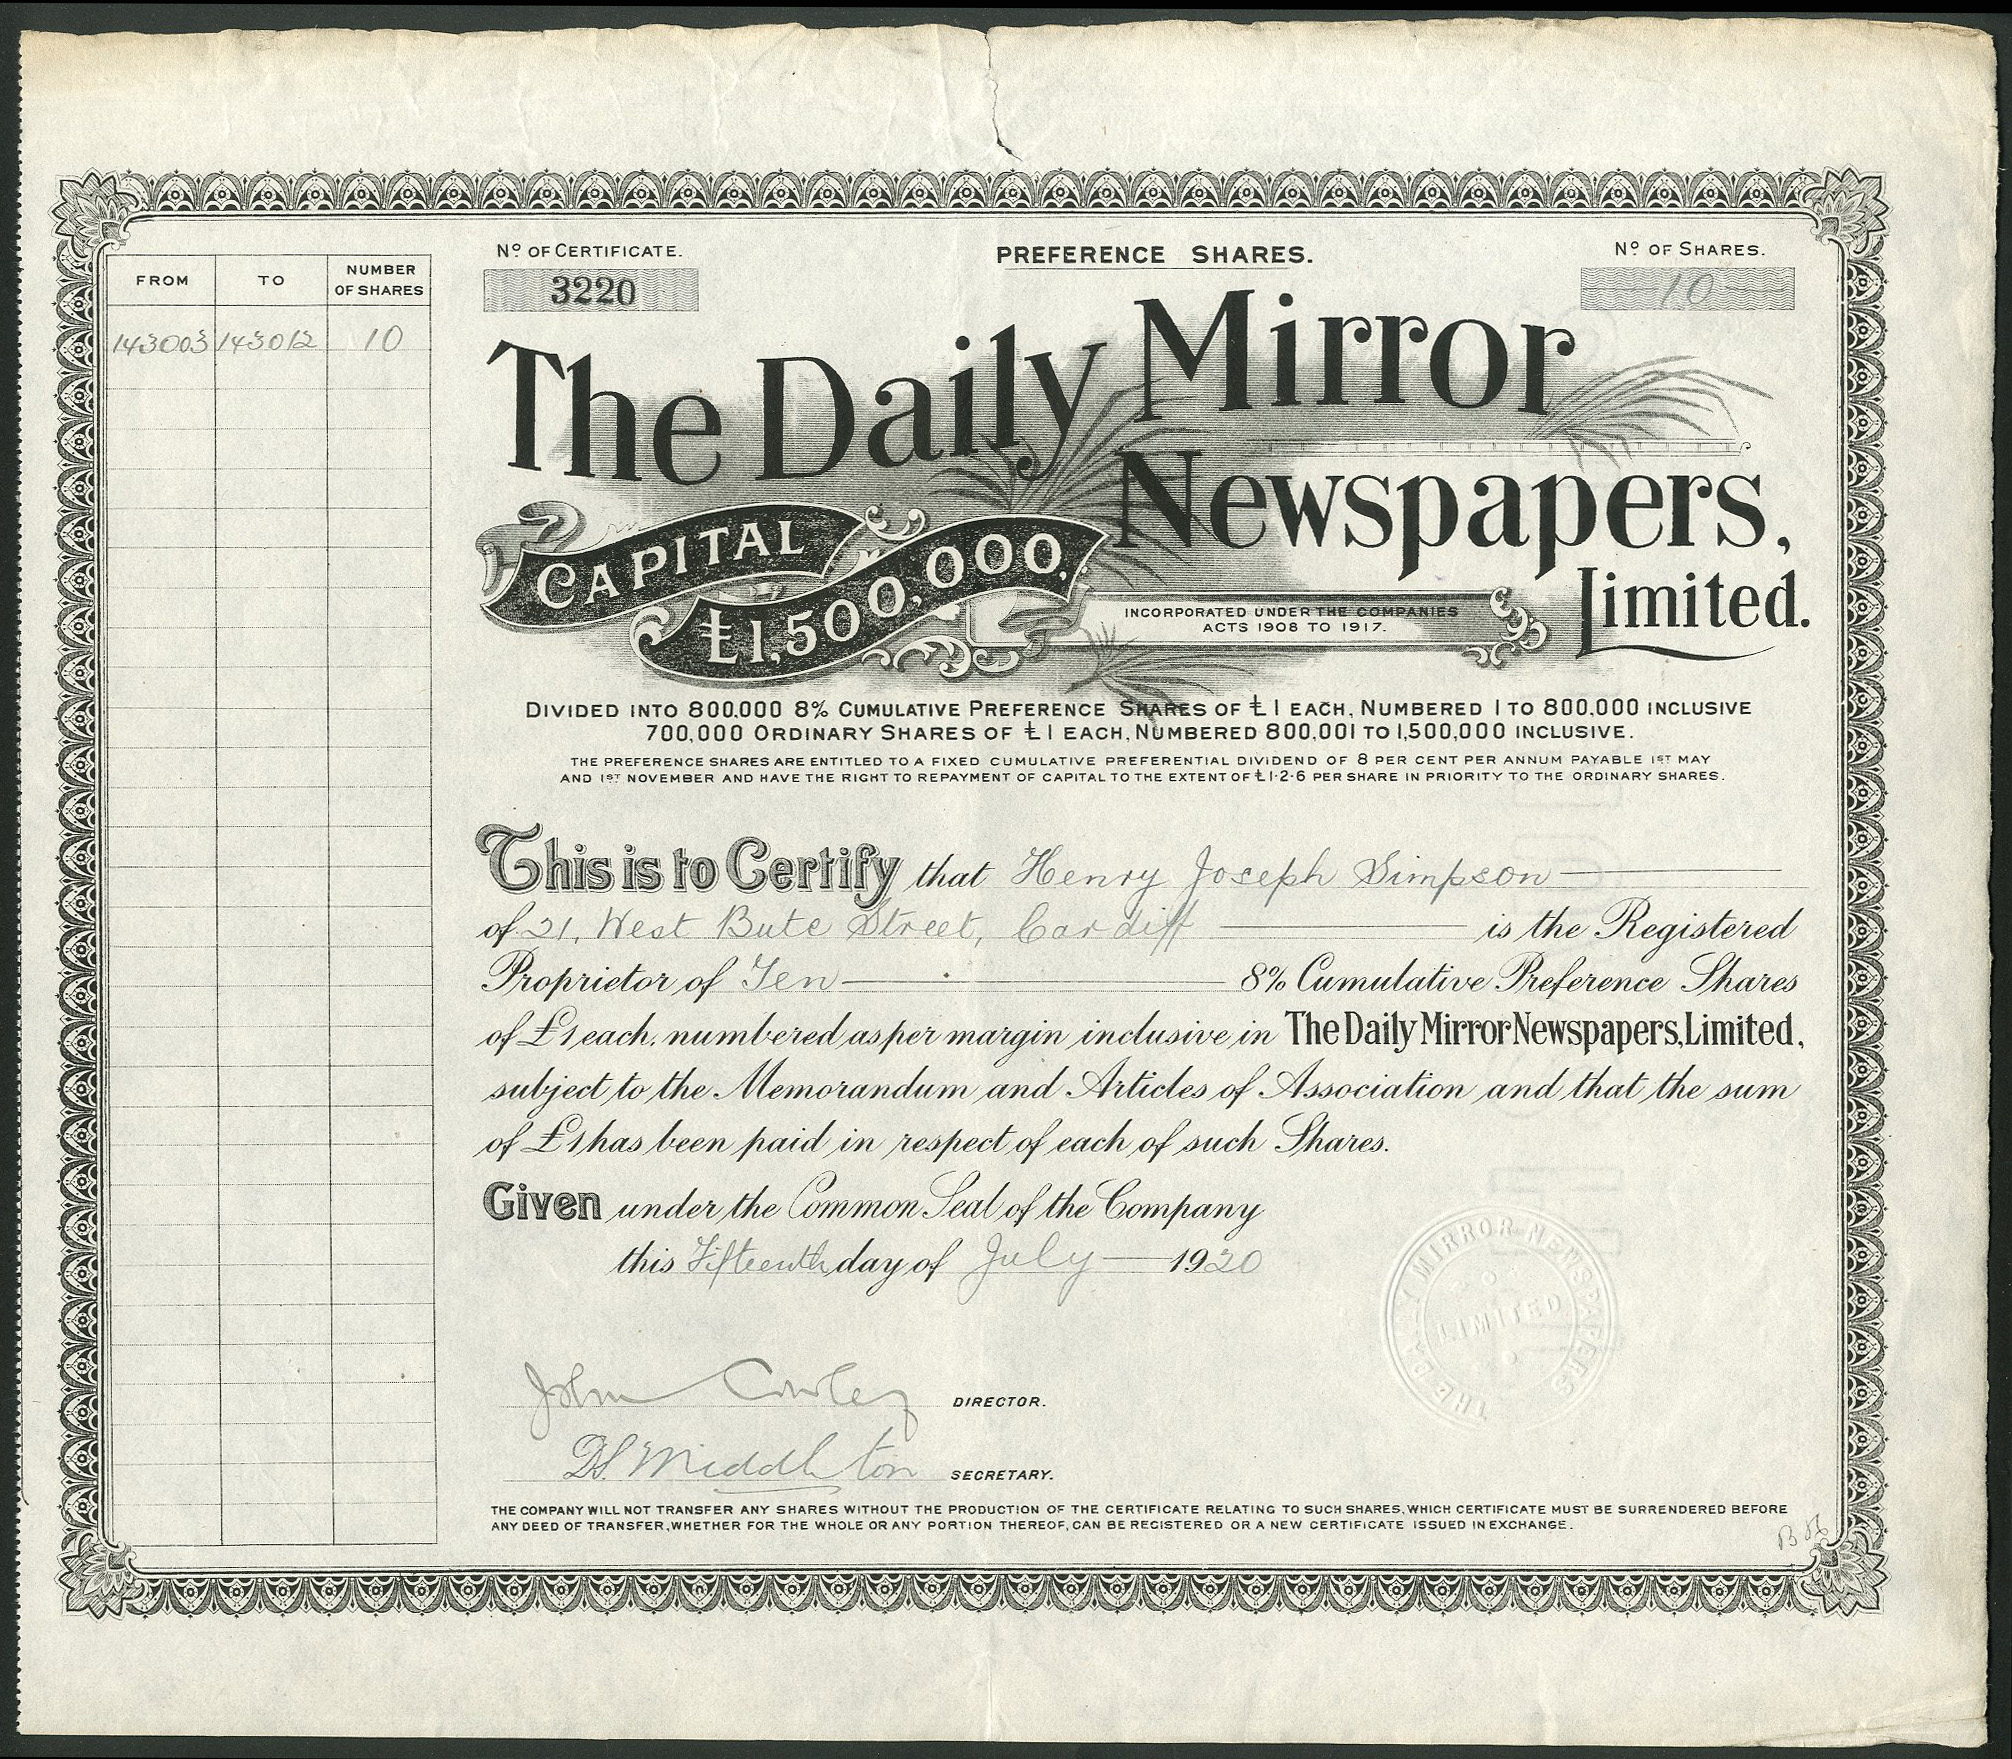 Nº OF CERTIFICATE.
PREFERENCE SHARES.
Nº OF SHARES.
3220
10
FROM TO NUMBER OF SHARES
143003 143012 10
The Daily Mirror
Newspapers,
Limited.
CAPITAL
£1,500,000.
INCORPORATED UNDER THE COMPANIES
ACTS 1908 TO 1917.
DIVIDED INTO 800,000 8% CUMULATIVE PREFERENCE SHARES OF £1 EACH, NUMBERED 1 TO 800,000 INCLUSIVE
700,000 ORDINARY SHARES OF £1 EACH, NUMBERED 800,001 TO 1,500,000 INCLUSIVE.
THE PREFERENCE SHARES ARE ENTITLED TO A FIXED CUMULATIVE PREFERENTIAL DIVIDEND OF 8 PER CENT PER ANNUM PAYABLE 1ST MAY
AND 1ST NOVEMBER AND HAVE THE RIGHT TO REPAYMENT OF CAPITAL TO THE EXTENT OF £1·2·6 PER SHARE IN PRIORITY TO THE ORDINARY SHARES.
This is to Certify that Henry Joseph Simpson
of 21, West Bute Street, Cardiff is the Registered
Proprietor of Ten 8% Cumulative Preference Shares
of £1 each, numbered as per margin inclusive in The Daily Mirror Newspapers, Limited,
subject to the Memorandum and Articles of Association and that the sum
of £1 has been paid in respect of each of such Shares.
Given under the Common Seal of the Company
this Fifteenth day of July 1920
THE DAILY MIRROR NEWSPAPERS
LIMITED
John Cowley DIRECTOR.
D.S. Middleton SECRETARY.
THE COMPANY WILL NOT TRANSFER ANY SHARES WITHOUT THE PRODUCTION OF THE CERTIFICATE RELATING TO SUCH SHARES, WHICH CERTIFICATE MUST BE SURRENDERED BEFORE
ANY DEED OF TRANSFER, WHETHER FOR THE WHOLE OR ANY PORTION THEREOF, CAN BE REGISTERED OR A NEW CERTIFICATE ISSUED IN EXCHANGE.